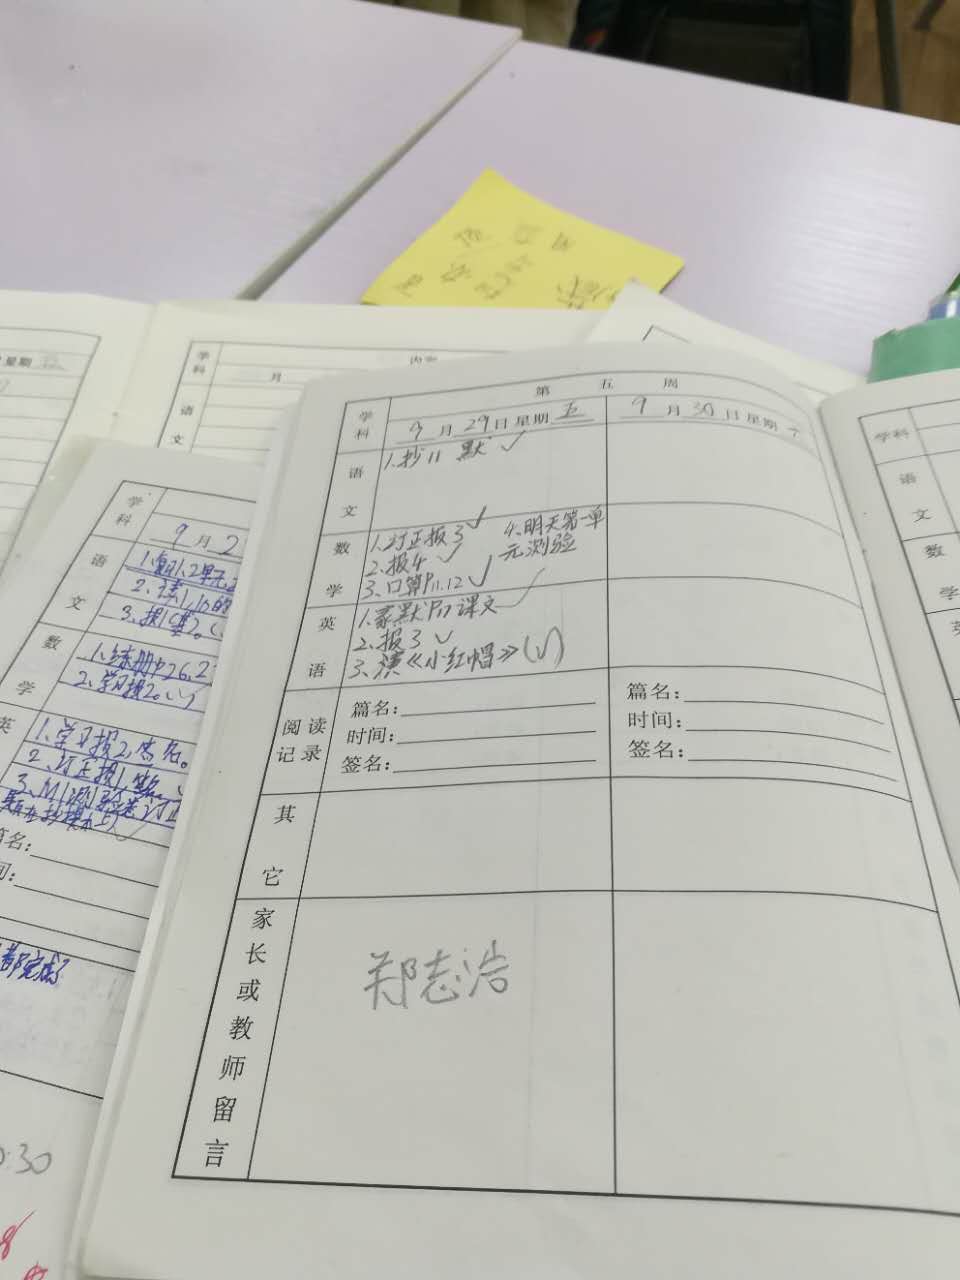 第 五 周
学科
9月29日星期五
9月30日星期
语文
1.抄11 默✓
数学
1.订正报3✓
2.报4✓
3.口算P11.12✓
4.明天第一单
元测验
英语
1.家默P17课文✓
2.报3✓
3.演《小红帽》(✓)
阅读记录
篇名:
时间:
签名:
篇名:
时间:
签名:
其它
家长或教师留言
郑志浩
学科
月
语文
星期
学科
9月2
语文
2.读1,10的
数学
1.练册P26,2
2.学习报2。(✓)
英
1.学习报2,签名。
2.订正报1,签名。
3.M1测验卷订正
篇名:
间:
都完成了
:30
学科
语文
数学
英